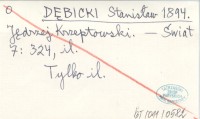 DĘBICKI Stanisław 1894.
Jędrzej Krzeptowski. — Świat
7: 324, il.
Tylko il.